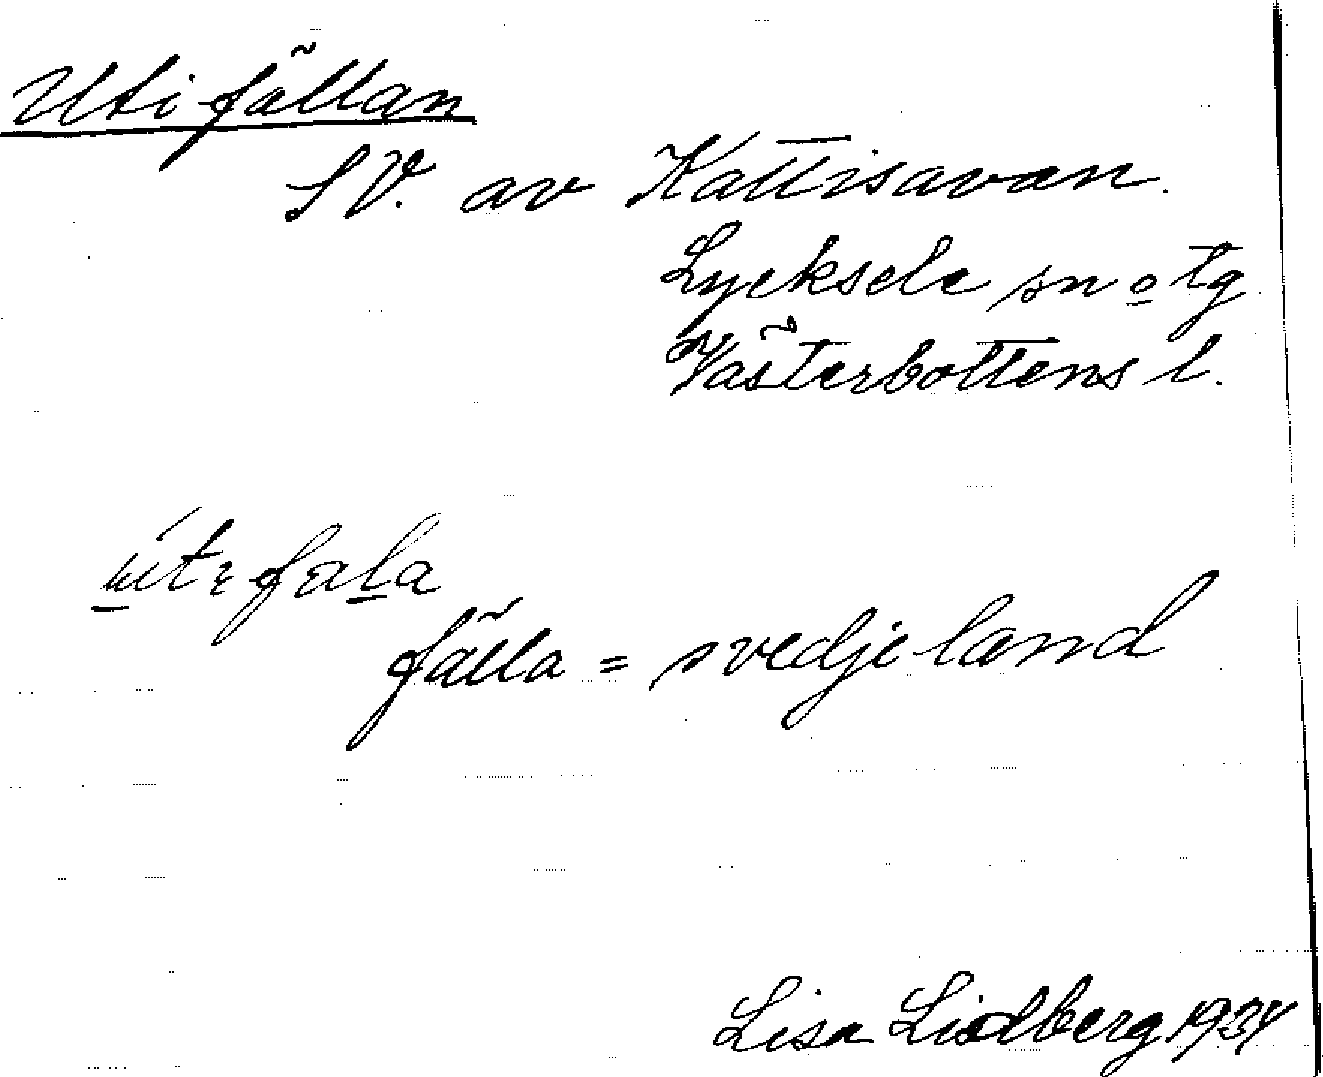 Utifällan
SV. av Kattisavan.
Lycksele sn o tg
Västerbottens l.
fälla = svedjeland
Lisa Lidberg 1934